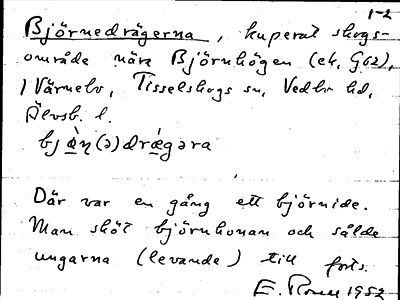 1-2
Björnedrägerna, kuperat skogs-
område nära Björnhögen (ek. G62),
/ Värnebo, Tisselskogs sn, Vedbo hd,
Älvsb. l.
bjä̀ɳ(ə)dræ̀gəra
Där var en gång ett björnide.
Man sköt björnhonan och sålde
ungarna (levande) till forts.
E. 1952